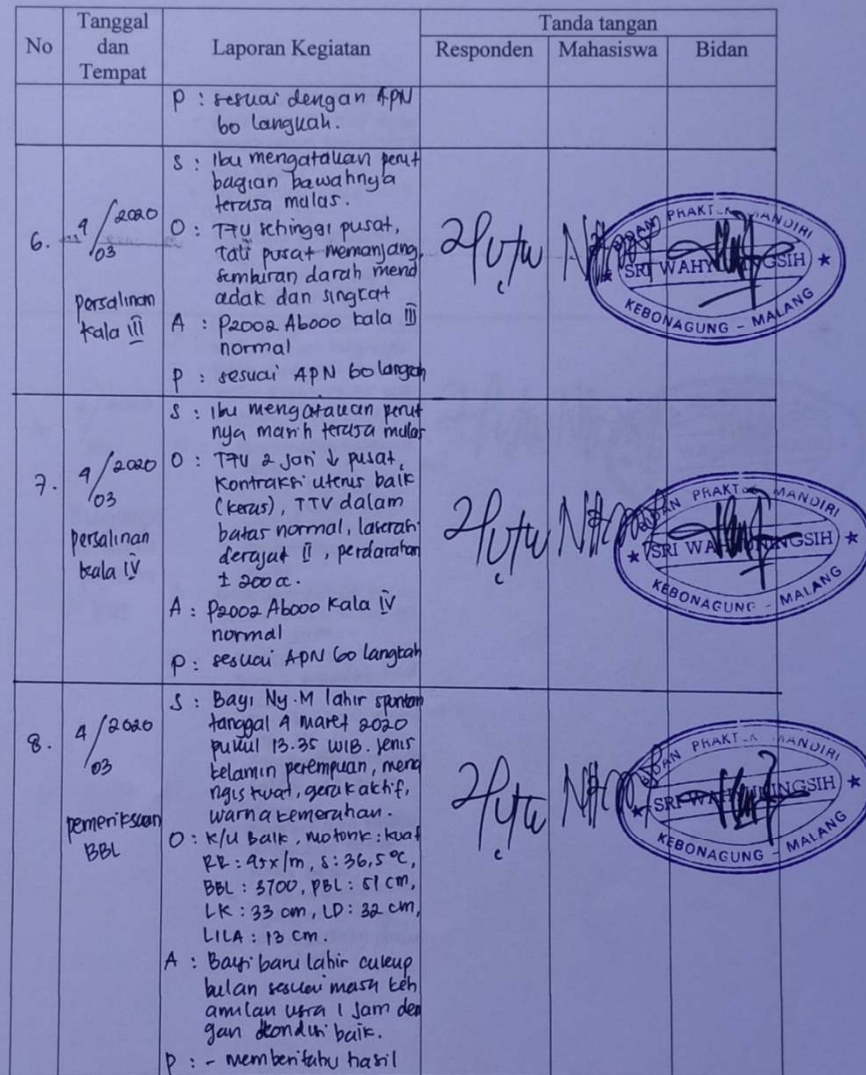 No
Tanggal
dan
Tempat
Laporan Kegiatan
Tanda tangan
Responden
Mahasiswa
Bidan
P : sesuai dengan APN
60 langkah.
6.
4/2020
03
persalinan
kala III
S : Ibu mengatakan perut
bagian bawahnya
terasa mulas.
O : TFU setinggi pusat,
Tali pusat memanjang,
semburan darah mend
adak dan singkat
A : P2002 Ab000 kala III
normal
P : sesuai APN 60 langkah
Putu
BIDAN PRAKTEK MANDIRI
SRI WAHYUNINGSIH
KEBONAGUNG - MALANG
7.
4/2020
03
persalinan
kala IV
S : Ibu mengatakan perut
nya masih terasa mulas
O : TFU 2 Jari ↓ pusat,
Kontraksi uterus baik
(keras), TTV dalam
batas normal, laserasi
derajat II, perdarahan
± 200 cc.
A : P2002 Ab000 Kala IV
normal
P : sesuai APN 60 langkah
Putu
BIDAN PRAKTEK MANDIRI
SRI WAHYUNINGSIH
KEBONAGUNG - MALANG
8.
4/2020
03
pemeriksaan
BBL
S : Bayi Ny. M lahir spontan
tanggal 4 maret 2020
pukul 13.35 WIB. Jenis
kelamin perempuan, mena
ngis kuat, gerak aktif,
warna kemerahan.
O : K/U Baik, motorik : kuat
RR : 45x/m, S : 36,5°C,
BBL : 3700, PBL : 51 cm,
LK : 33 cm, LD : 32 cm,
LILA : 13 cm.
A : Bayi baru lahir cukup
bulan sesuai masa keh
amilan usia 1 Jam den
gan kondisi baik.
P : - memberitahu hasil
Putu
BIDAN PRAKTEK MANDIRI
SRI WAHYUNINGSIH
KEBONAGUNG - MALANG